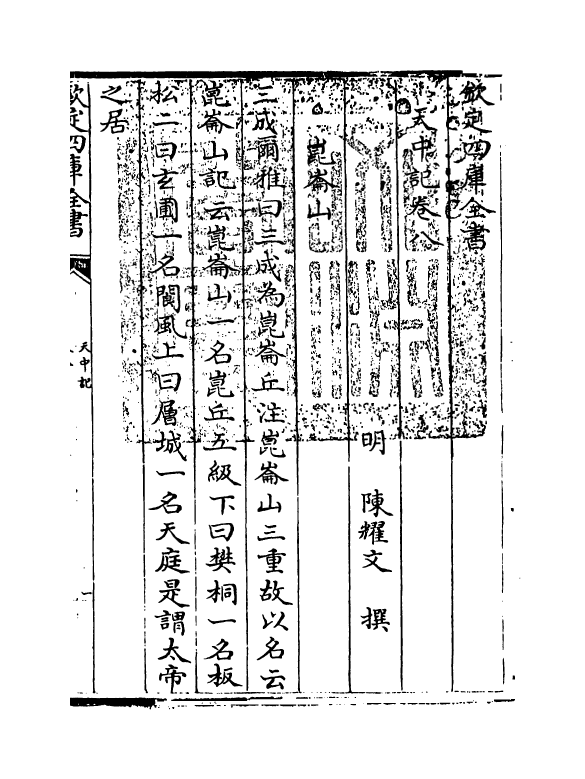 欽定四庫全書
天中記卷八
明 陳耀文 撰
崑崙山
三成爾雅曰三成為崑崙丘注崑崙山三重故以名云
崑崙山記云崑崙山一名崑丘五級下曰樊桐一名板
松二曰玄圃一名閬風上曰層城一名天庭是謂太帝
之居
欽定四庫全書
天中記
一